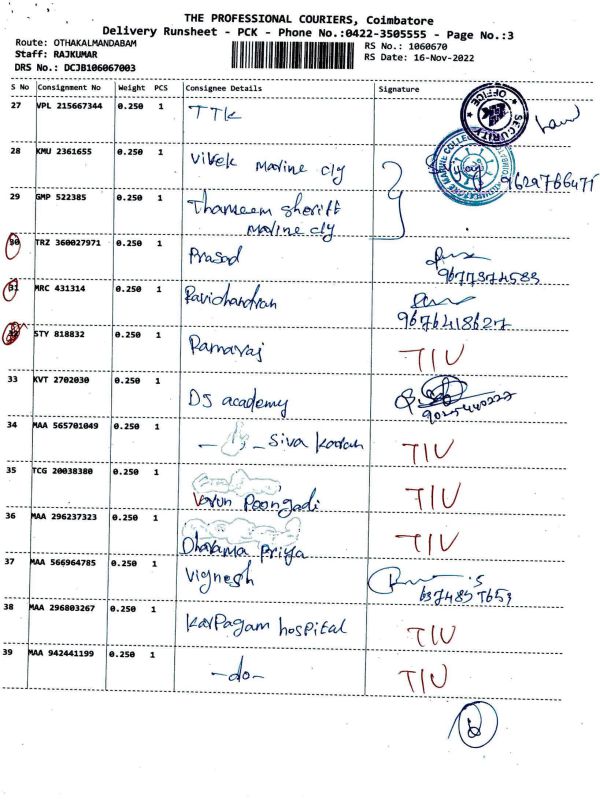 THE PROFESSIONAL COURIERS, Coimbatore
Delivery Runsheet - PCK - Phone No.:0422-3505555 - Page No.:3
Route: OTHAKALMANDABAM
RS No.: 1060670
Staff: RAJKUMAR
RS Date: 16-Nov-2022
DRS No.: DCJB106067003
S No Consignment No Weight PCS Consignee Details Signature
27 VPL 215667344 0.250 1 TTK
SECURITY OFFICE
28 KMU 2361655 0.250 1 Vivek Marine clg
9629766475
29 GMP 522385 0.250 1 Thameem Sheriff
Marine clg
30 TRZ 360027971 0.250 1 Prasad
9677374583
31 MRC 431314 0.250 1 Ravichandran
9676418627
32 STY 818832 0.250 1 Ramaraj TIU
33 KVT 2702030 0.250 1 DS academy
9025440227
34 MAA 565701049 0.250 1 Siva TIU
35 TCG 20038380 0.250 1 Varun Poongadi TIU
36 MAA 296237323 0.250 1 Dharama Priya TIU
37 MAA 566964785 0.250 1 Vignesh
38 MAA 296803267 0.250 1 KarPagam hospital TIU
39 MAA 942441199 0.250 1 -do- TIU